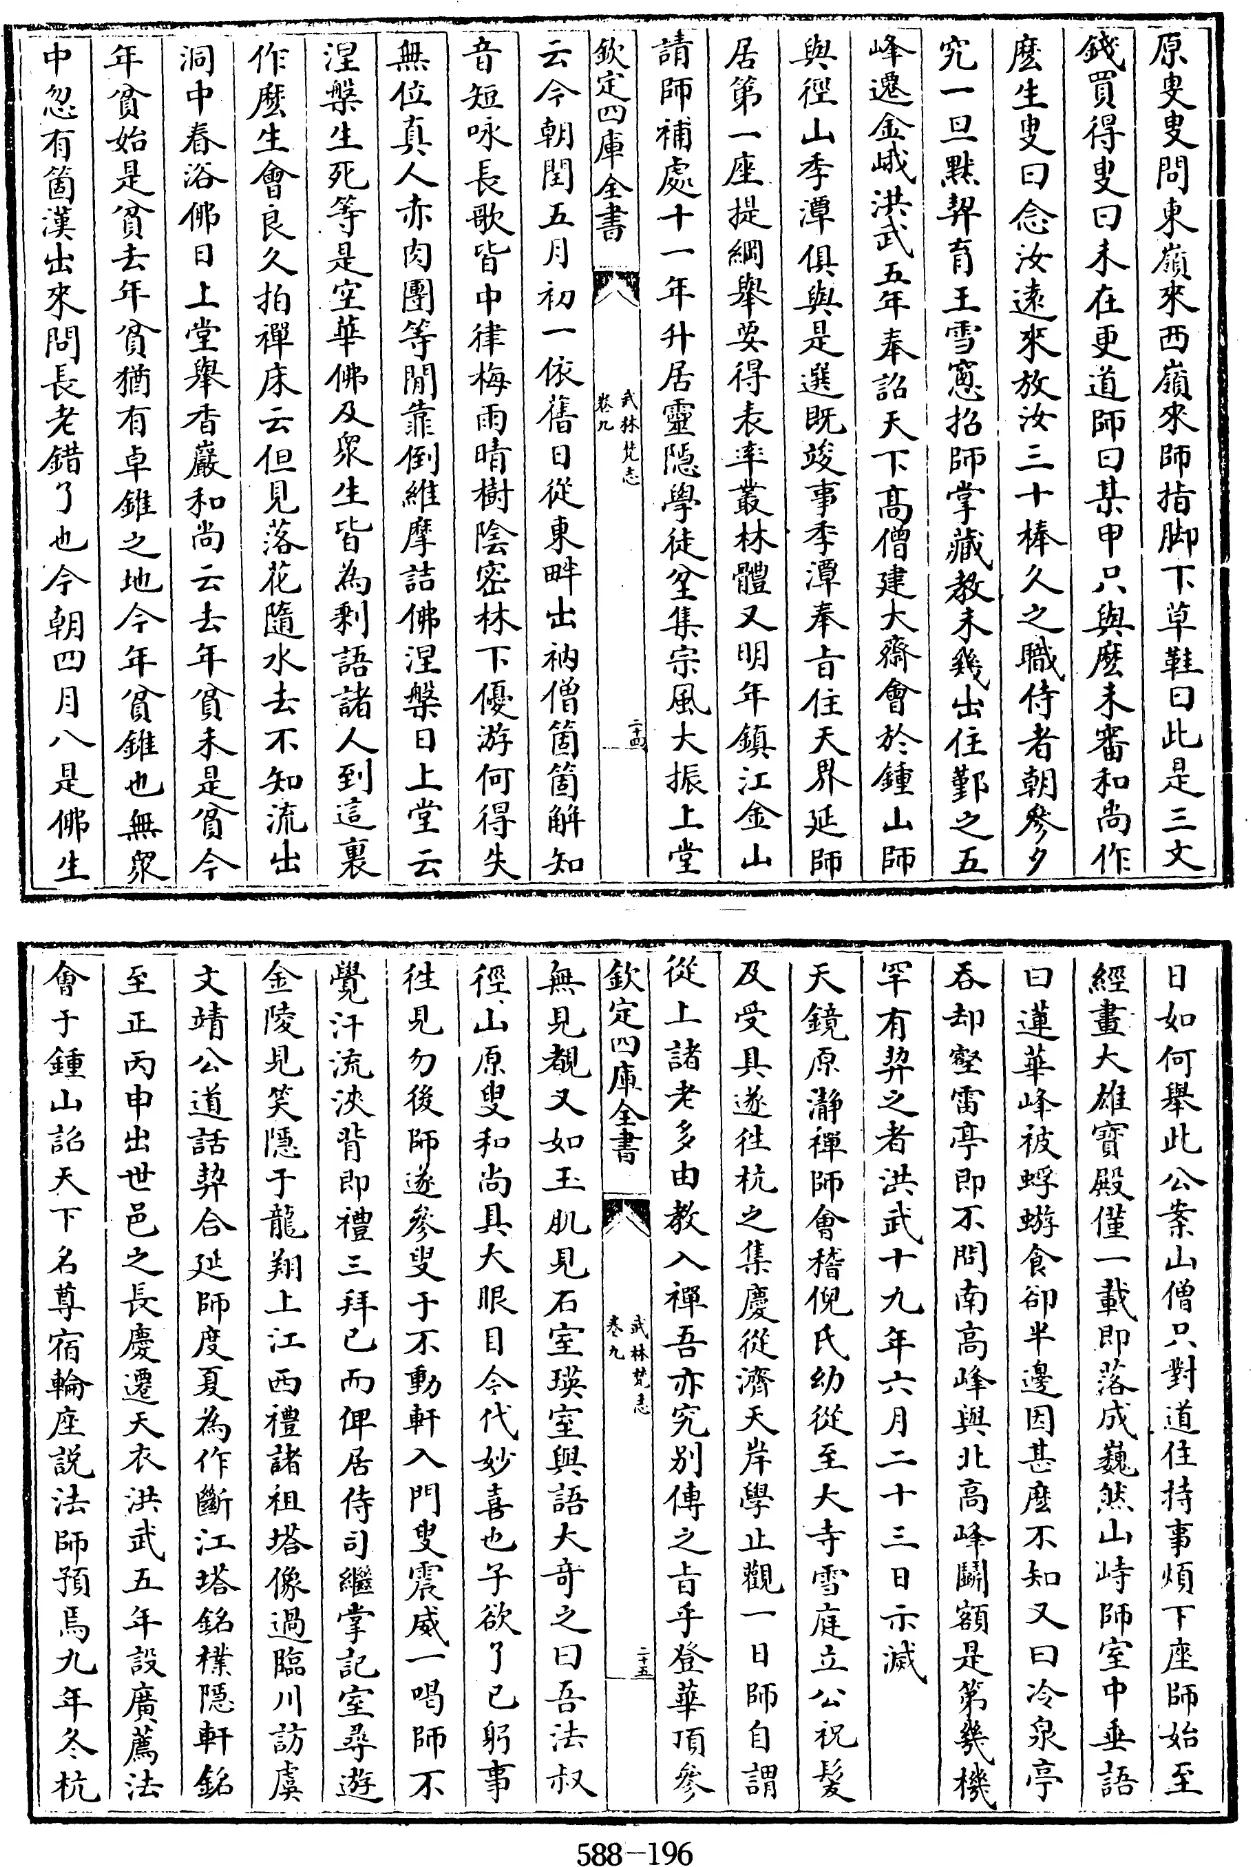 原叟叟問東嶺來西嶺來師指脚下草鞋曰此是三文
錢買得叟曰未在更道師曰某甲只與麽未審和尚作
麽生叟曰念汝遠來放汝三十棒久之職侍者朝參夕
究一旦黙契育王雪窻招師掌藏教未幾出住鄞之五
峰遷金峨洪武五年奉詔天下髙僧建大齋會於鍾山師
與徑山季潭俱與是選既竣事季潭奉㫖住天界延師
居第一座提綱舉要得表率叢林體又明年鎮江金山
請師補處十一年升居靈隠學徒坌集宗風大振上堂
欽定四庫全書
武林梵志
卷九
二十四
云今朝閏五月初一依舊日從東畔出衲僧箇箇解知
音短咏長歌皆中律梅雨晴樹陰密林下優游何得失
無位真人赤肉團等閒靠倒維摩詰佛涅槃日上堂云
涅槃生死等是空華佛及衆生皆為剩語諸人到這裏
作麽生會良久拍禪床云但見落花隨水去不知流出
洞中春浴佛日上堂舉香嚴和尚云去年貧未是貧今
年貧始是貧去年貧猶有卓錐之地今年貧錐也無衆
中忽有箇漢出來問長老錯了也今朝四月八是佛生
日如何舉此公案山僧只對道住持事煩下座師始至
經畫大雄寶殿僅一載即落成巍然山峙師室中垂語
曰蓮華峰被蜉蝣食卻半邊因甚麽不知又曰冷泉亭
吞却壑雷亭即不問南高峰與北高峰鬭額是第幾機
罕有契之者洪武十九年六月二十三日示滅
天鏡原瀞禪師會稽倪氏幼從至大寺雪庭立公祝髮
及受具遂徃杭之集慶從濟天岸學止觀一日師自謂
從上諸老多由教入禪吾亦究别傳之㫖乎登華頂參
欽定四庫全書
武林梵志
卷九
二十五
無見覩又如玉肌見石室瑛室與語大奇之曰吾法叔
徑山原叟和尚具大眼目今代妙喜也子欲了已躬事
徃見勿後師遂參叟于不動軒入門叟震威一喝師不
覺汗流浹背即禮三拜已而俾居侍司繼掌記室尋遊
金陵見笑隠于龍翔上江西禮諸祖塔像過臨川訪虞
文靖公道話契合延師度夏為作斷江塔銘樸隠軒銘
至正丙申出世邑之長慶遷天衣洪武五年設廣薦法
會于鍾山詔天下名尊宿輪座説法師預焉九年冬杭
588-196